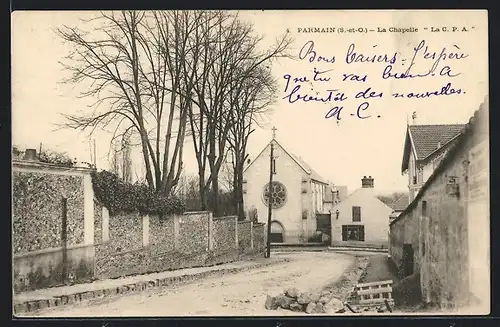 PARMAIN (S.-et-O.) — La Chapelle " La C. P. A. "
Bons baisers. J'espère
que tu vas bien, à
bientôt des nouvelles.
A. C.